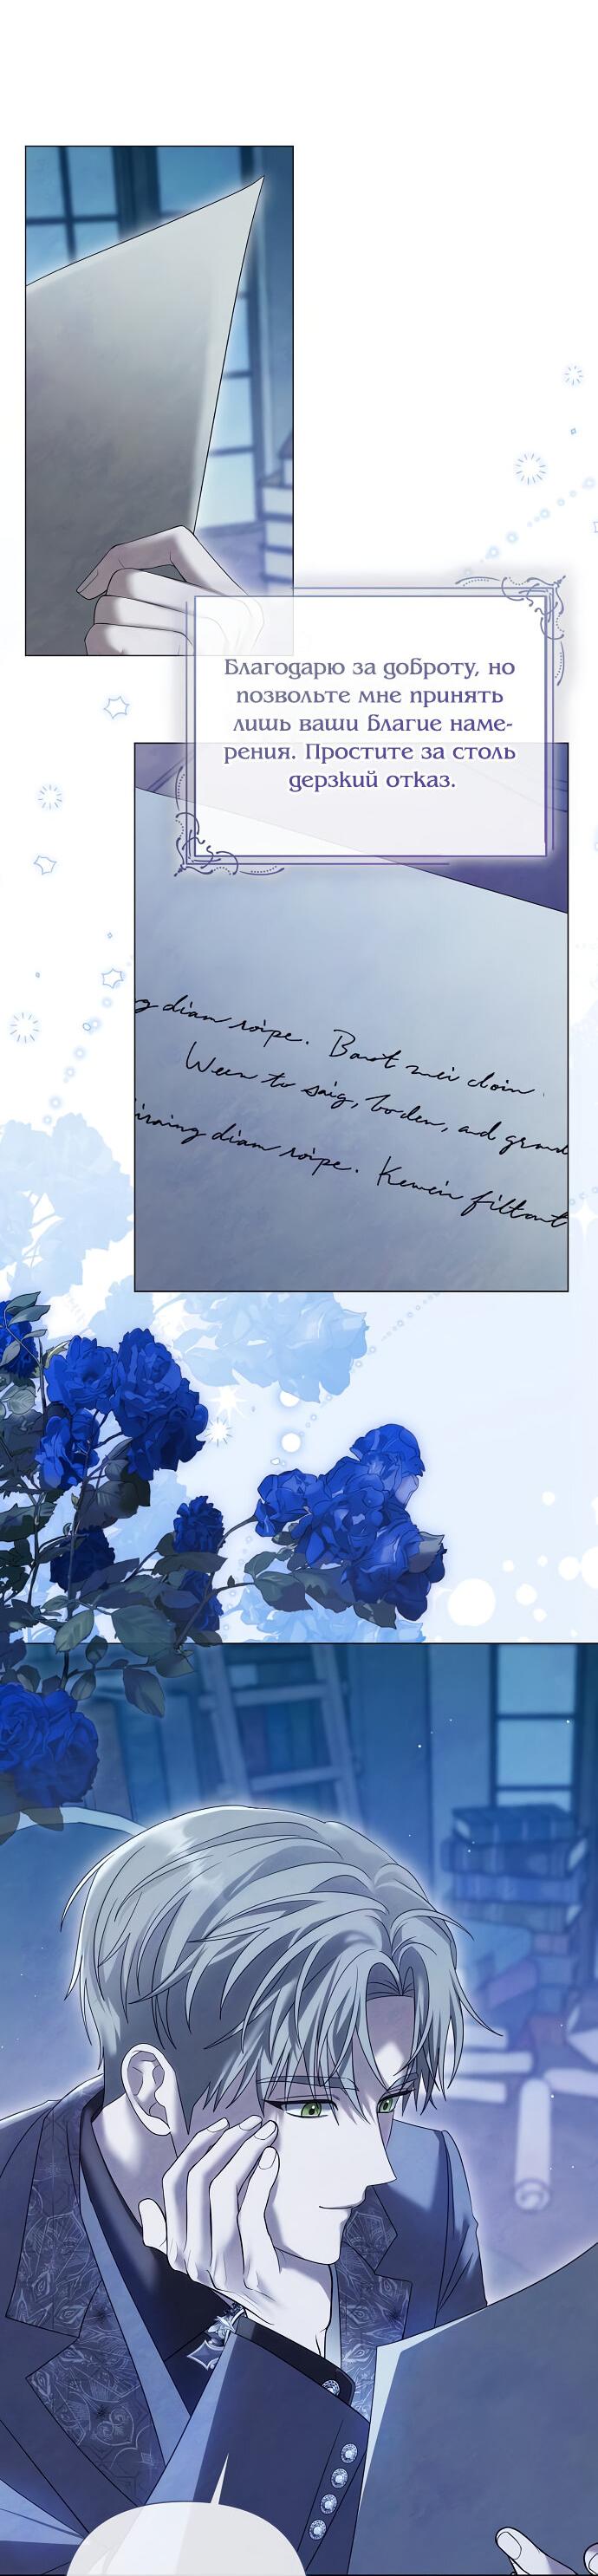 Благодарю за доброту, но
позвольте мне принять
лишь ваши благие наме-
рения. Простите за столь
дерзкий отказ.
g dian roipe. Baot mei cloin
Ween to saig, boden, and grand
iraing dian roipe. Kewein filtont